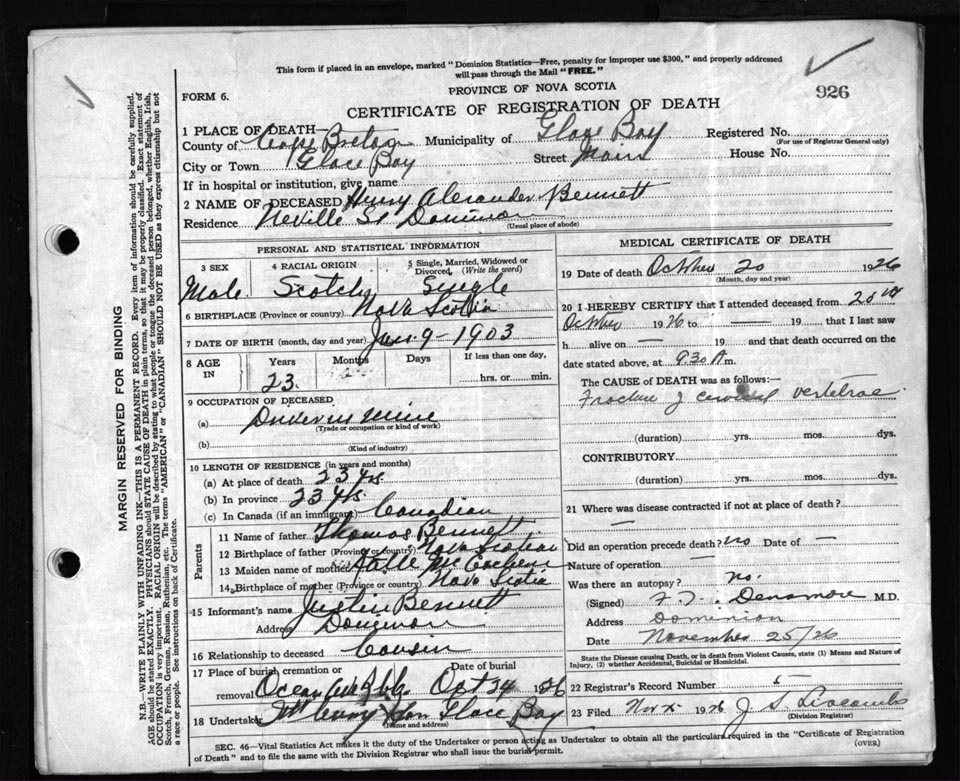 This form if placed in an envelope, marked "Dominion Statistics—Free, penalty for improper use $300," and properly addressed
will pass through the Mail "FREE."
PROVINCE OF NOVA SCOTIA
926
FORM 6.
CERTIFICATE OF REGISTRATION OF DEATH
1 PLACE OF DEATH—
County of Cape Breton Municipality of Glace Bay Registered No.
(For use of Registrar General only)
City or Town Glace Bay Street Main House No.
If in hospital or institution, give name
2 NAME OF DECEASED Henry Alexander Bennett
Residence Neville St Dominion
(Usual place of abode)
PERSONAL AND STATISTICAL INFORMATION
3 SEX 4 RACIAL ORIGIN 5 Single, Married, Widowed or Divorced, (Write the word)
Male Scotch Single
6 BIRTHPLACE (Province or country) Nova Scotia
7 DATE OF BIRTH (month, day and year) Jan. 9 - 1903
8 AGE IN Years Months Days If less than one day,
23 hrs. or min.
9 OCCUPATION OF DECEASED
(a) Driver in Mine
(Trade or occupation or kind of work)
(b)
(Kind of industry)
10 LENGTH OF RESIDENCE (in years and months)
(a) At place of death 23 yrs.
(b) In province 23 yrs.
(c) In Canada (if an immigrant) Canadian
Parents
11 Name of father Thomas Bennett
12 Birthplace of father (Province or country) Nova Scotian
13 Maiden name of mother McEachern
14 Birthplace of mother (Province or country) Nova Scotia
15 Informant's name Justin Bennett
Address Dominion
16 Relationship to deceased Cousin
17 Place of burial, cremation or removal Date of burial
Oct 24 1926
18 Undertaker Glace Bay
(Name and address)
MEDICAL CERTIFICATE OF DEATH
19 Date of death October 20 1926
(Month, day and year)
20 I HEREBY CERTIFY that I attended deceased from 20th
October 1926 to — 19 that I last saw
h alive on — 19 and that death occurred on the
date stated above, at 9.30 A m.
The CAUSE OF DEATH was as follows:—
Fracture of cervical vertebrae
(duration) yrs. mos. dys.
CONTRIBUTORY
(duration) yrs. mos. dys.
21 Where was disease contracted if not at place of death?
—
Did an operation precede death? no Date of —
Nature of operation —
Was there an autopsy? no.
(Signed) Densmore M.D.
Address Dominion
Date November 25/26
State the Disease causing Death, or in death from Violent Causes, state (1) Means and Nature of
Injury, (2) whether Accidental, Suicidal or Homicidal.
22 Registrar's Record Number 5
23 Filed Nov 1926 J. S.
(Division Registrar)
SEC. 46—Vital Statistics Act makes it the duty of the Undertaker or person acting as Undertaker to obtain all the particulars required in the "Certificate of Registration
of Death" and to file the same with the Division Registrar who shall issue the burial permit.
(OVER)
MARGIN RESERVED FOR BINDING
N.B.—WRITE PLAINLY WITH UNFADING INK—THIS IS A PERMANENT RECORD. Every item of information should be carefully supplied.
AGE should be stated EXACTLY. PHYSICIANS should STATE CAUSE OF DEATH in plain terms, so that it may be properly classified. Exact statement of
OCCUPATION is very important. RACIAL ORIGIN will be described by stating to what people or tongue the deceased person belonged, whether English, Irish,
Scotch, French, German, Russian, Ruthenian, etc. The terms "AMERICAN" or "CANADIAN" SHOULD NOT BE USED as they express citizenship but not
a race or people. See instructions on back of Certificate.